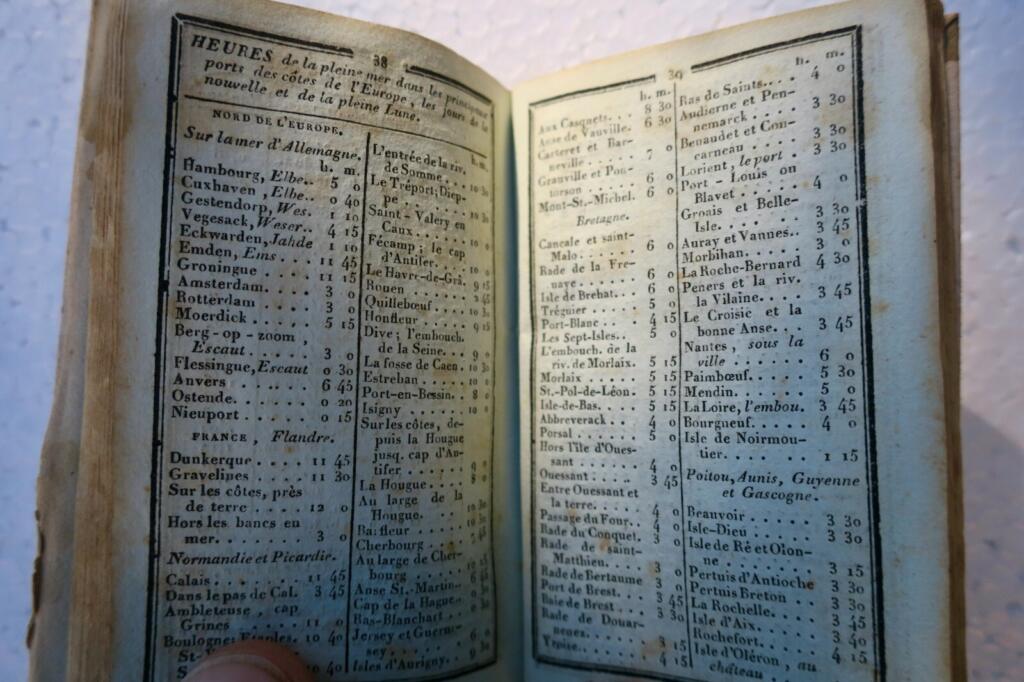 38
HEURES de la pleine mer dans les principaux
ports des côtes de l'Europe, les jours de la
nouvelle et de la pleine Lune.
NORD DE L'EUROPE.
Sur la mer d'Allemagne.
h. m.
Hambourg, Elbe.. 5 0
Cuxhaven, Elbe.. 0 40
Gestendorp, Wes. 1 10
Vegesack, Weser.. 4 15
Eckwarden, Jahde 1 10
Emden, Ems . . . 11 45
Groningue . . . . 11 15
Amsterdam. . . . 3 0
Rotterdam . . . . 3 0
Moerdick . . . . . 5 15
Berg-op-zoom,
Escaut. . . . . 3 0
Flessingue, Escaut 0 30
Anvers . . . . . 6 45
Ostende. . . . . 0 20
Nieuport . . . . 0 15
FRANCE, Flandre.
Dunkerque . . . . 11 45
Gravelines . . . . 11 30
Sur les côtes, près
de terre . . . . 12 0
Hors les bancs en
mer. . . . . . 3 0
Normandie et Picardie.
Calais . . . . . . 11 45
Dans le pas de Cal. 3 45
Ambleteuse, cap
Grines . . . . 11 0
Boulogne; Etaples. 10 40
St-
10 40
h. m.
L'entrée de la riv.
de Somme. . . 10 30
Le Tréport; Diep-
pe . . . . . . 10 30
Saint-Valery en
Caux. . . . . . 10 0
Fécamp; le cap
d'Antifer. . . . 10 0
Le Havre-de-Grâ. 9 15
Rouen . . . . . 2 45
Quillebœuf . . . . 10 30
Honfleur . . . . 9 15
Dive; l'embouch.
de la Seine. . . 9 0
La fosse de Caen. 10 30
Estrehan . . . . 10 0
Port-en-Bessin. . 8 0
Isigny . . . . . 10 0
Sur les côtes, de-
puis la Hougue
jusq. cap d'An-
tifer. . . . . . 9 0
La Hougue. . . . 8 0
Au large de la
Hougue. . . . 10 30
Barfleur . . . .
Cherbourg . . . .
Au large de Cher-
bourg . . . . 10 15
Anse St.-Martin. . 6 45
Cap de la Hague..
Ras-Blanchart . .
Jersey et Guerne-
sey. . . . . . 6 0
Isles d'Aurigny. . 9 30
39
h. m.
Aux Casquets. . . 8 30
Anse de Vauville. 6 30
Carteret et Bar-
neville . . . . 7 0
Granville et Pon-
torson . . . . 6 0
Mont-St-Michel. 6 0
Bretagne.
Cancale et saint-
Malo. . . . . . 6 0
Rade de la Fre-
naye. . . . . . 6 0
Isle de Brehat. . . 6 0
Tréguier . . . . 5 0
Port-Blanc. . . . 4 15
Les Sept-Isles. . . 5 0
L'embouch. de la
riv. de Morlaix. 5 15
Morlaix . . . . . 5 15
St.-Pol-de-Léon. . 5 15
Isle-de-Bas. . . . 5 15
Abbreverack . . . 4 0
Porsal. . . . . . 5 0
Hors l'île d'Oues-
sant . . . . . 4 0
Ouessant. . . . . 3 45
Entre Ouessant et
la terre. . . . . 4 0
Passage du Four. . 4 0
Rade du Conquet. 3 0
Rade de saint-
Matthieu. . . . 3 0
Rade de Bertaume 3 0
Port de Brest. . . 3 45
Baie de Brest . . 3 0
Rade de Douar-
nenez. . . . . 3 15
4 15
h. m.
Ras de Saints. . . 4 0
Audierne et Pen-
nemarck . . . . 3 30
Benaudet et Con-
carneau . . . . 3 30
Lorient, le port . 3 30
Port-Louis ou
Blavet . . . . . 4 0
Groais et Belle-
Isle. . . . . . 3 30
Auray et Vannes. . 3 45
Morbihan. . . . . 3 0
La Roche-Bernard 4 30
Peners et la riv.
la Vilaine. . . . 3 45
Le Croisic et la
bonne Anse. . . 3 45
Nantes, sous la
ville . . . . . 6 0
Paimbœuf. . . . . 5 30
Mendin. . . . . . 5 0
La Loire, l'embou. 3 45
Bourgneuf. . . . . 4 0
Isle de Noirmou-
tier. . . . . . 1 15
Poitou, Aunis, Guyenne
et Gascogne.
Beauvoir . . . . . 3 30
Isle-Dieu . . . . . 3 30
Isle de Ré et Olon-
ne . . . . . . 3 15
Pertuis d'Antioche 3 30
Pertuis Breton . . 3 30
La Rochelle. . . . 3 45
Isle d'Aix. . . . . 3 40
Rochefort. . . . . 4 15
Isle d'Oléron, au
château . . . .